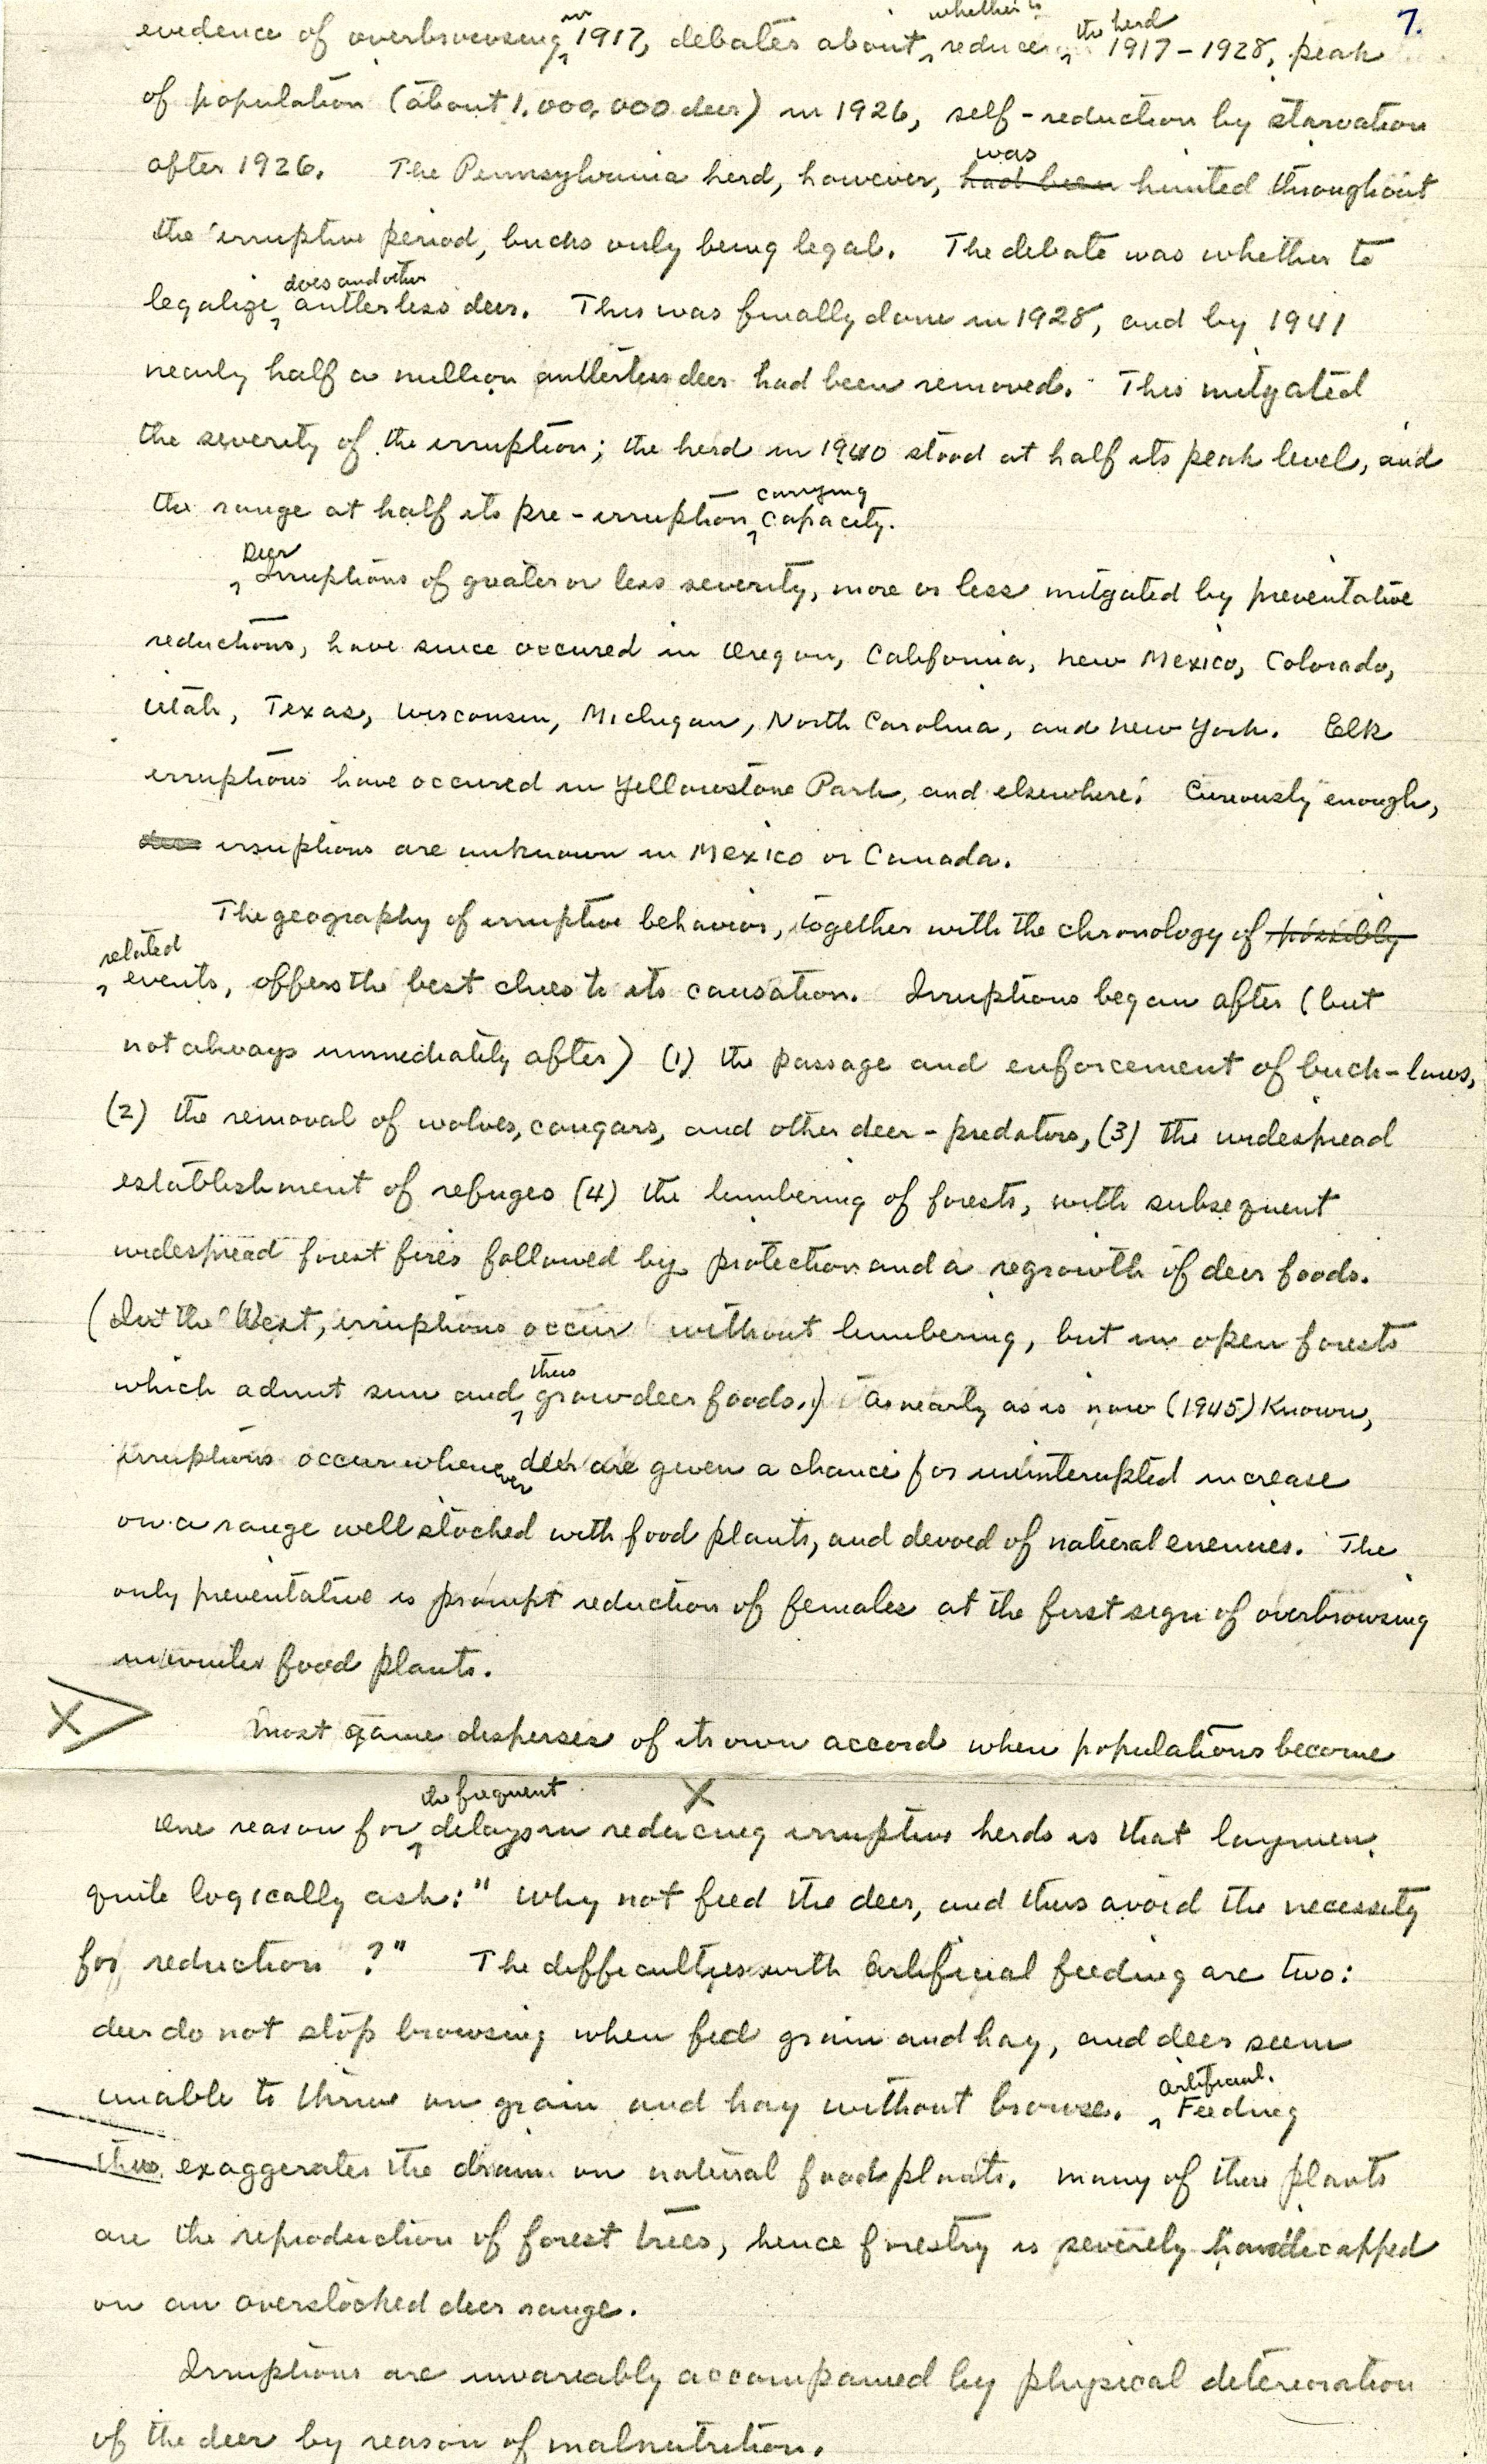 7.
evidence of overbrowsing in 1917, debates about whether to reduce the herd 1917-1928, peak
of population (about 1,000,000 deer) in 1926, self-reduction by starvation
after 1926. The Pennsylvania herd, however, had been was hunted throughout
the irruptive period, bucks only being legal. The debate was whether to
legalize does and other antlerless deer. This was finally done in 1928, and by 1941
nearly half a million antlerless deer had been removed. This mitgated
the severity of the irruption; the herd in 1940 stood at half its peak level, and
the range at half its pre-irruption carrying capacity.
Deer Irruptions of greater or less severity, more or less mitgated by preventative
reductions, have since occured in Oregon, California, New Mexico, Colorado,
Utah, Texas, Wisconsin, Michigan, North Carolina, and New York. Elk
irruptions have occured in Yellowstone Park, and elsewhere. Curiously enough,
irruptions are unknown in Mexico or Canada.
The geography of irruptive behavior, together with the chronology of possibly
related events, offers the best clues to its causation. Irruptions began after (but
not always immediately after) (1) the passage and enforcement of buck-laws,
(2) the removal of wolves, cougars, and other deer-predators, (3) the widespread
establishment of refuges (4) the lumbering of forests, with subsequent
widespread forest fires followed by protection and a regrowth of deer foods.
(In the West, irruptions occur without lumbering, but in open forests
which admit sun and thus grow deer foods.) As nearly as is now (1945) known,
irruptions occur whenever deer are given a chance for uninterupted increase
on a range well stocked with food plants, and devoid of natural enemies. The
only preventative is prompt reduction of females at the first sign of overbrowsing
food plants.
X Most game disperses of its own accord when populations become
X
One reason for the frequent delays in reducing irruptive herds is that laymen
quite logically ask: "Why not feed the deer, and thus avoid the necessity
for reduction ?" The difficulties with artificial feeding are two:
deer do not stop browsing when fed grain and hay, and deer seem
unable to thrive on grain and hay without browse. Artificial Feeding
thus exaggerates the drain on natural food plants. Many of these plants
are the reproduction of forest trees, hence forestry is severely handicapped
on an overstocked deer range.
Irruptions are invariably accompanied by physical deterioration
of the deer by reason of malnutrition.